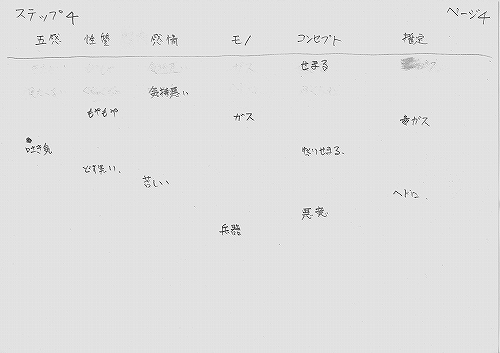 ステップ4 ページ4
五感 性質 感情 モノ コンセプト 推定
せまる
気持悪い
もやもや ガス ガス
吐き気 せまる.
どす黒い.
苦しい
ヘドロ.
悪意
兵器